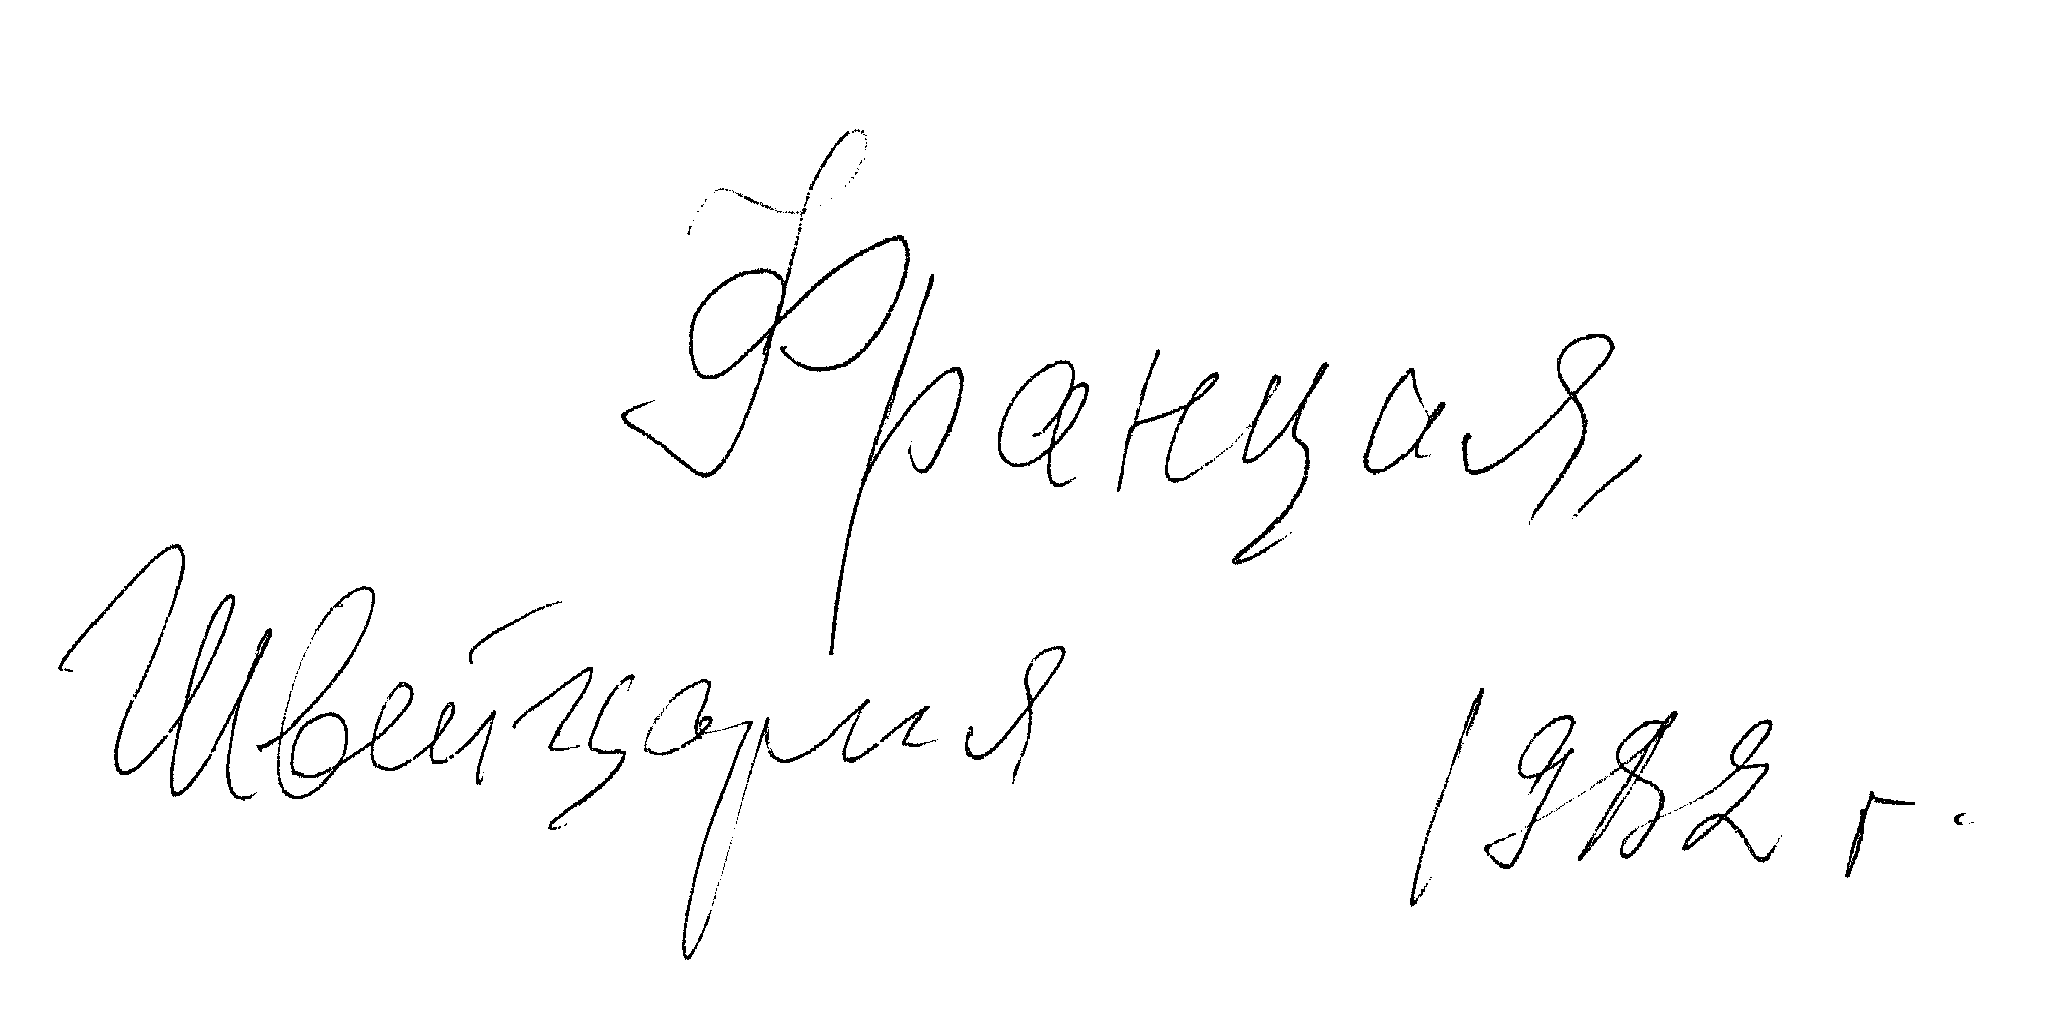 Франция,
Швейцария 1982 г.